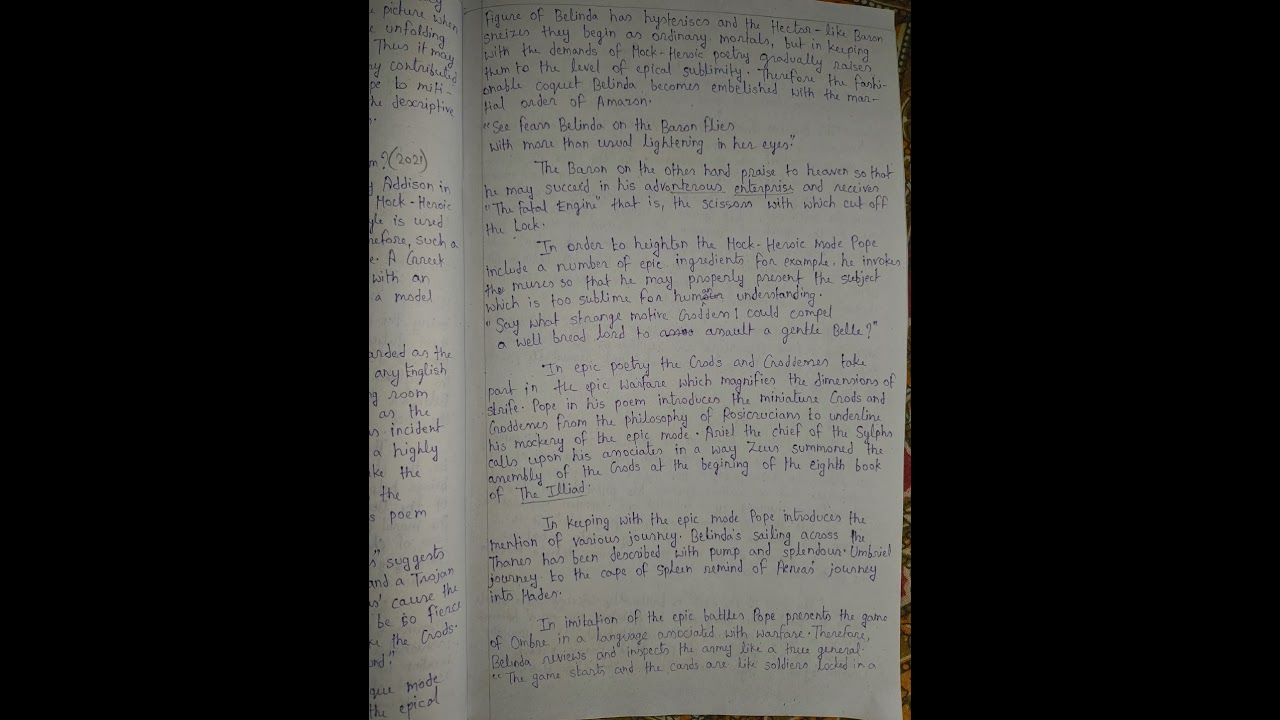 picture when
unfolding
Thus it may
contributed
pe to miti-
he descriptive
m? (2021)
Addison in
Mock-Heroic
yle is used
refore, such a
e. A Career
with an
a model
arded as the
any English
ng room
as the
s incident
a highly
ke the
the
s poem
" suggests
and a Trojan
s' cause the
be so fierce
ke the Gods.
und?"
que mode
the epical
figure of Belinda has hysterises and the Hector-like Baron
sneizes they begin as ordinary mortals, but in keeping
with the demands of Mock-Heroic poetry gradually raises
them to the level of epical sublimity. Therefore the fashi-
onable coquet Belinda becomes embelished with the mar-
tial order of Amazon.
"See fears Belinda on the Baron flies
with more than usual lightening in her eyes."
The Baron on the other hand praise to heaven so that
he may succeed in his advonterous enterprise and receives
"The Fatal Engine" that is, the scissors with which cut off
the Lock.
In order to heighten the Mock-Heroic Mode Pope
include a number of epic ingredients for example. he invokes
the muses so that he may properly present the subject
which is too sublime for human understanding.
"Say what strange motive Goddess! could compel
a well bread lord to assault a gentle Belle?"
In epic poetry the Gods and Goddesses take
part in the epic warfare which magnifies the dimensions of
strife. Pope in his poem introduces the miniature Gods and
Goddesses from the philosophy of Rosicrucians to underline
his mockery of the epic mode. Ariel the chief of the Sylphs
calls upon his associates in a way Zeus summoned the
assembly of the Gods at the begining of the eighth book
of The Illiad.
In keeping with the epic mode Pope introduces the
mention of various journey. Belinda's sailing across the
Thanes has been described with pump and splendous. Umbriel
journey to the cape of Spleen remind of Aeneas' journey
into Hades.
In imitation of the epic battles Pope presents the game
of Ombre in a language associated with warfare. Therefore,
Belinda reviews and inspects the army like a true general.
"The game starts and the cards are like soldiers locked in a